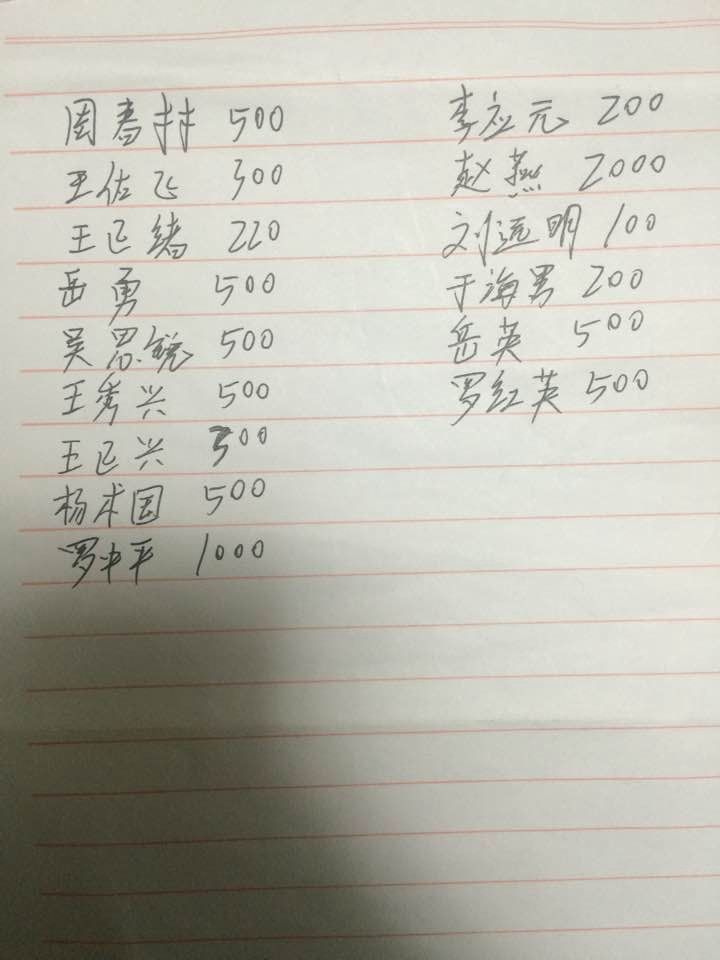 周春林 500
王佐飞 300
王正绪 220
岳勇 500
吴思锐 500
王秀兴 500
王正兴 500
杨术国 500
罗中平 1000
李应元 200
赵燕 2000
刘远明 100
于海男 200
岳英 500
罗红英 500